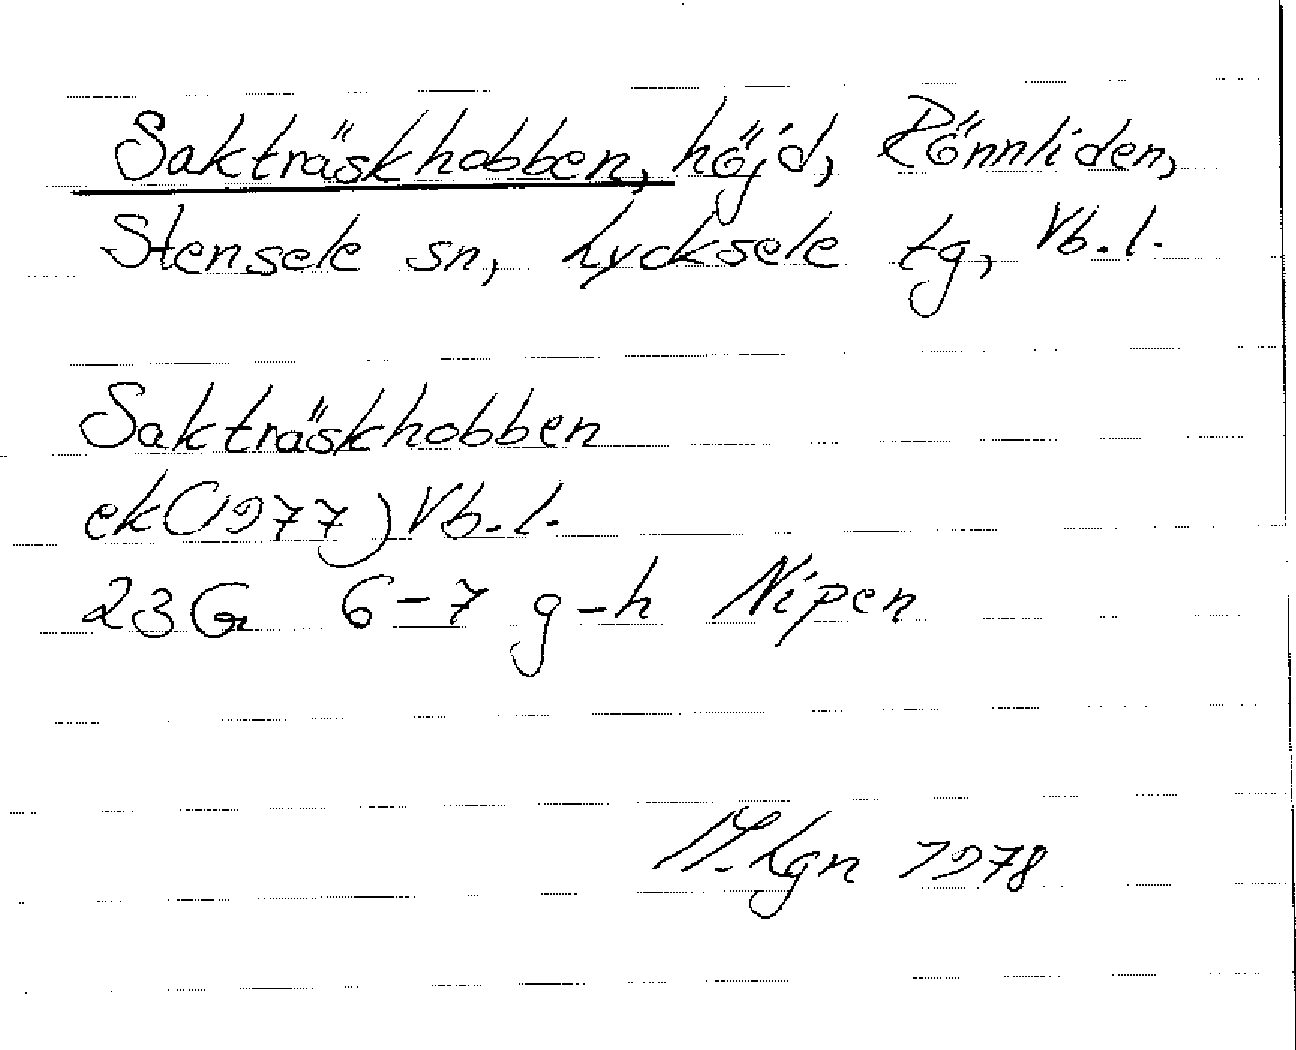 Sakträskhobben, höjd, Rönnliden,
Stensele sn, Lycksele tg, Vb.l.
Sakträskhobben
ek(1977)Vb.l.
23G 6-7 g-h Nipen
M.Lgn 1978